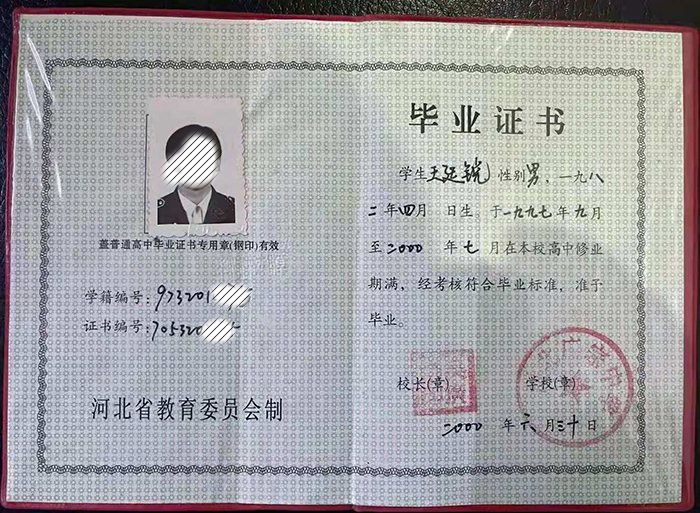 盖普通高中毕业证书专用章(钢印)有效
学籍编号:9732010
证书编号:705320
河北省教育委员会制
毕业证书
学生王延锐 性别男,一九八
二年四月 日生。于一九九七年九月
至二000 年七月在本校高中修业
期满,经考核符合毕业标准,准于
毕业。
校长(章) 学校(章)
广宗中学
二000 年六月三十日